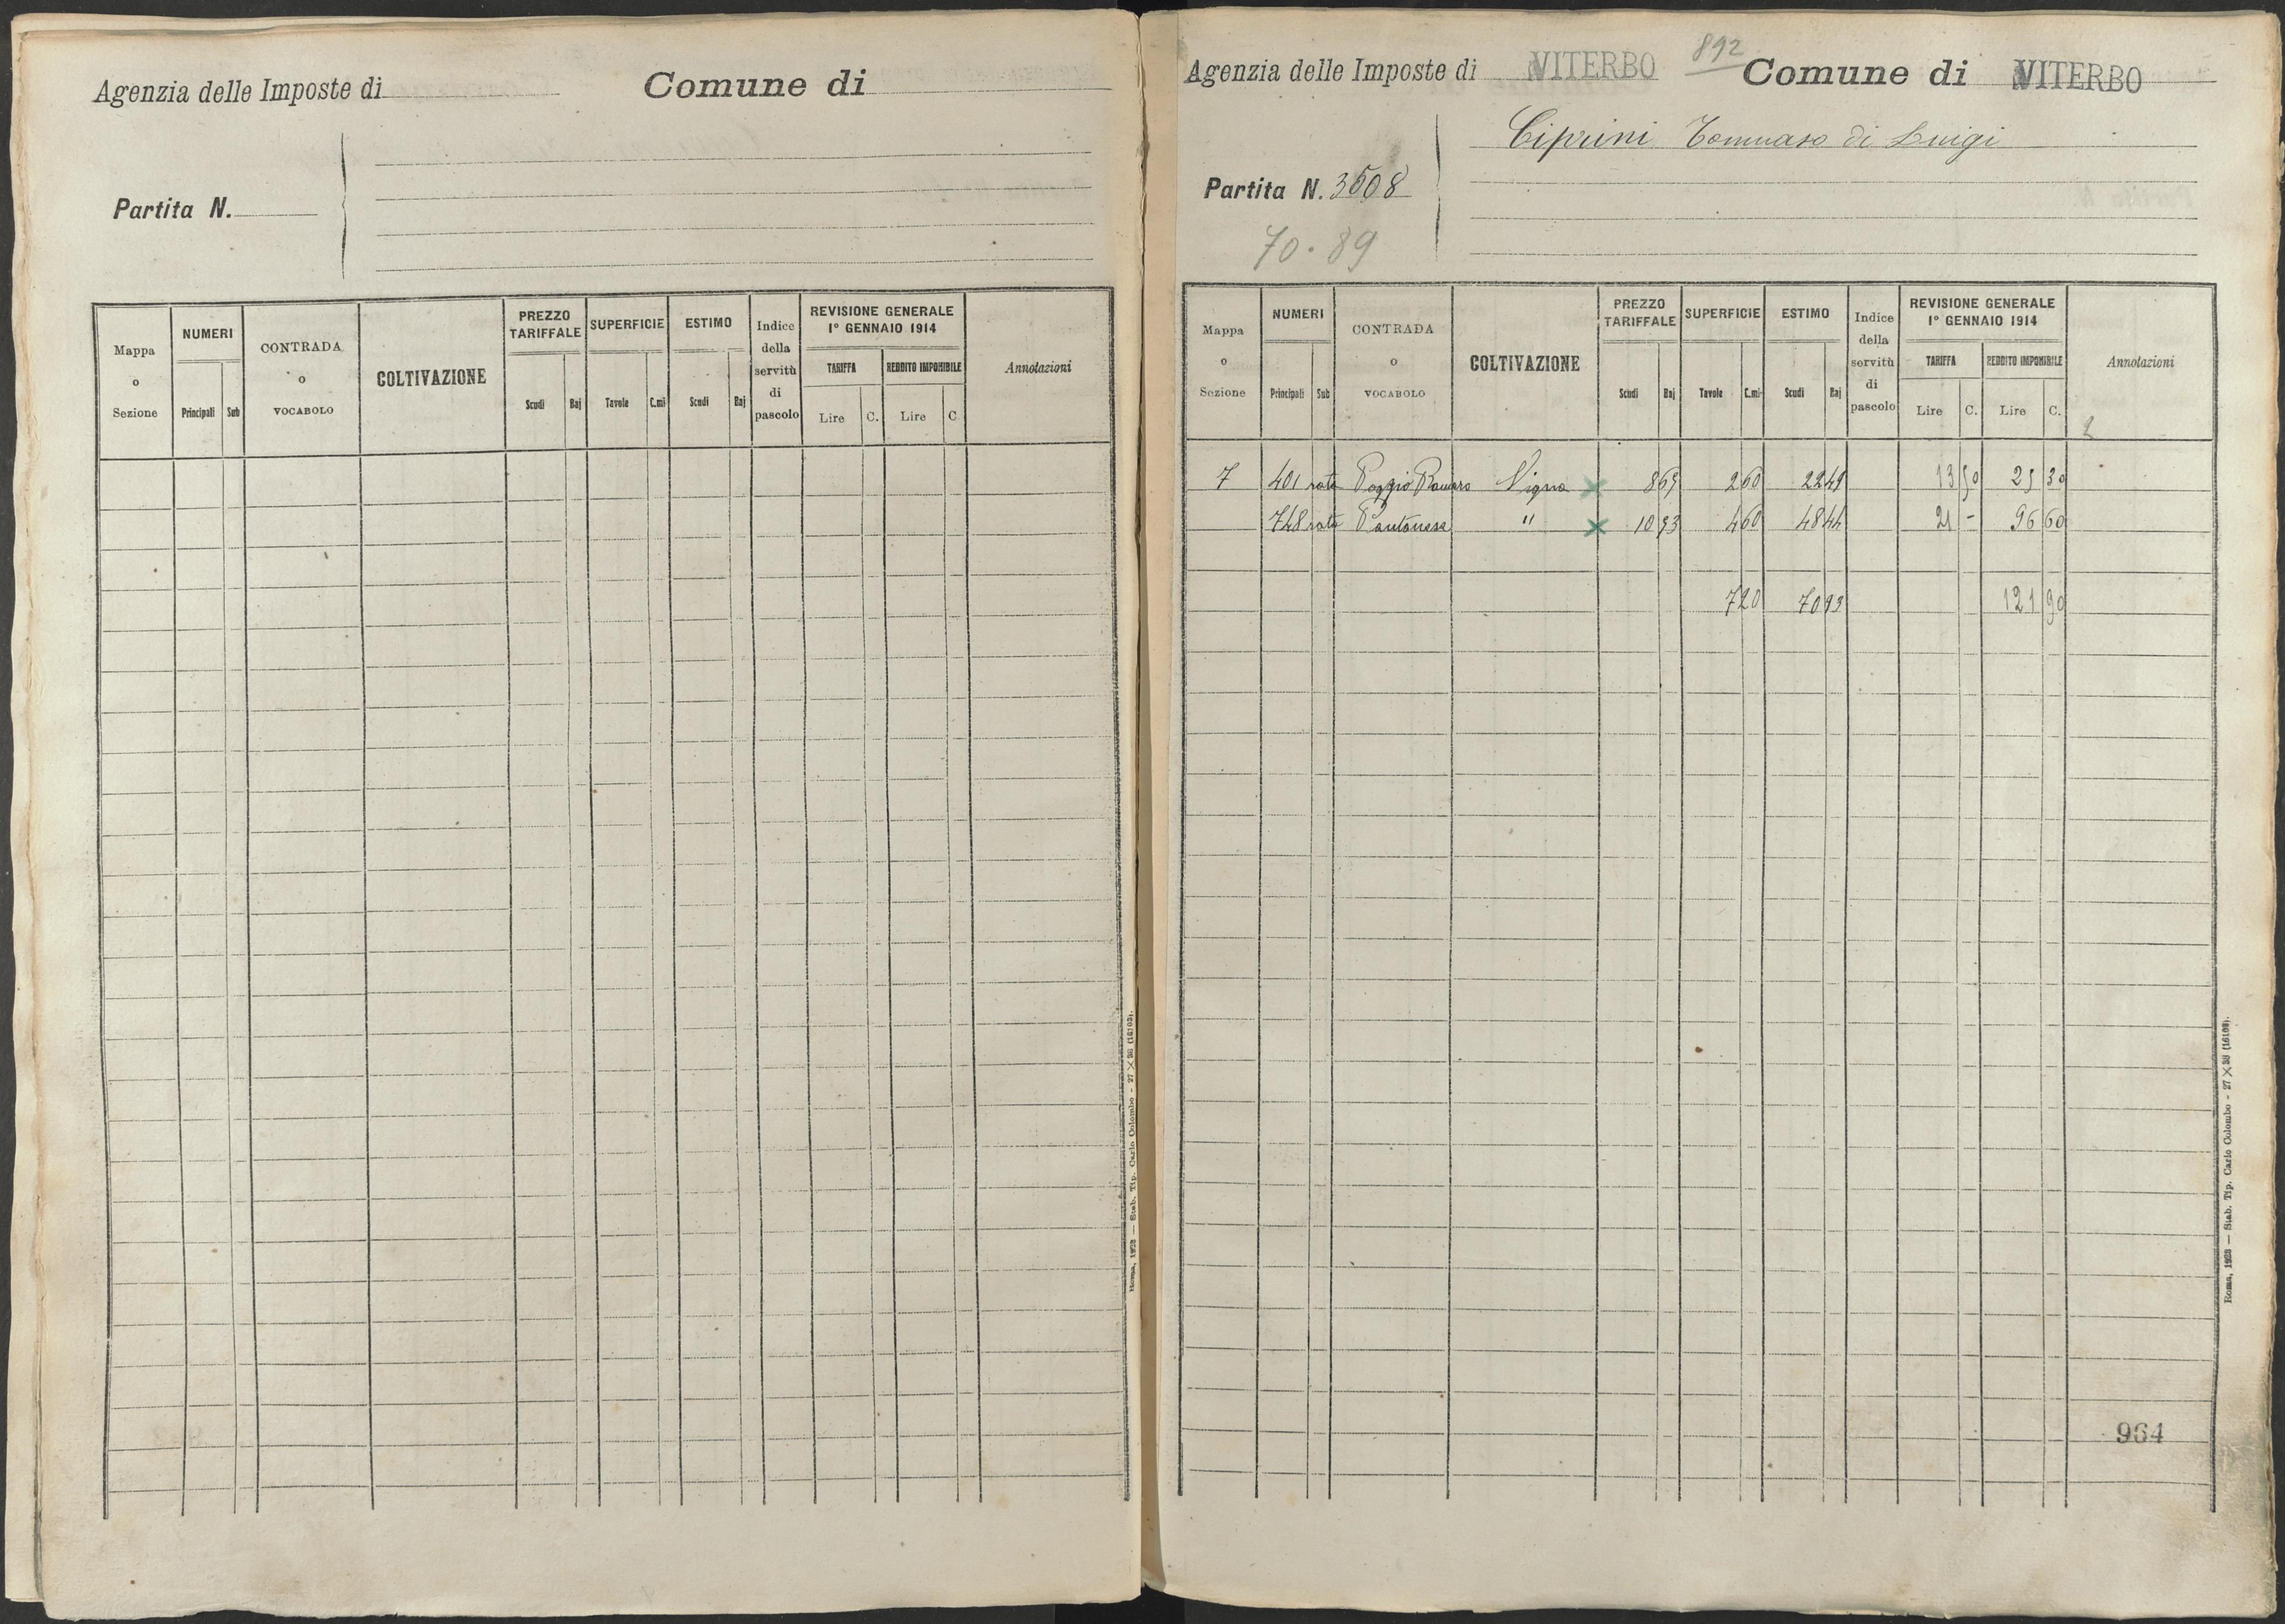 Agenzia delle Imposte di
Comune di
Partita N.
Mappa o Sezione
NUMERI
Principali Sub
CONTRADA o VOCABOLO
COLTIVAZIONE
PREZZO TARIFFALE
Scudi Baj
SUPERFICIE
Tavole C.mi
ESTIMO
Scudi Baj
Indice della servitù di pascolo
REVISIONE GENERALE
1° GENNAIO 1914
TARIFFA
Lire C.
REDDITO IMPONIBILE
Lire C
Annotazioni
Roma, 1923 — Stab. Tip. Carlo Colombo - 27 × 38 (16103).
Agenzia delle Imposte di VITERBO
892
Comune di VITERBO
Ciprini Tommaso di Luigi
Partita N. 3508
70.89
Mappa o Sezione
NUMERI
Principali Sub
CONTRADA o VOCABOLO
COLTIVAZIONE
PREZZO TARIFFALE
Scudi Baj
SUPERFICIE
Tavole C.mi
ESTIMO
Scudi Baj
Indice della servitù di pascolo
REVISIONE GENERALE
1° GENNAIO 1914
TARIFFA
Lire C.
REDDITO IMPONIBILE
Lire C.
Annotazioni
7 401 rata Poggio Vigna 8 65 2 60 22 49 13 50 25 30
748 rata Pantanese " 10 53 4 60 48 44 21 - 96 60
7 20 70 93 121 90
964
Roma, 1923 — Stab. Tip. Carlo Colombo - 27 × 38 (16103).